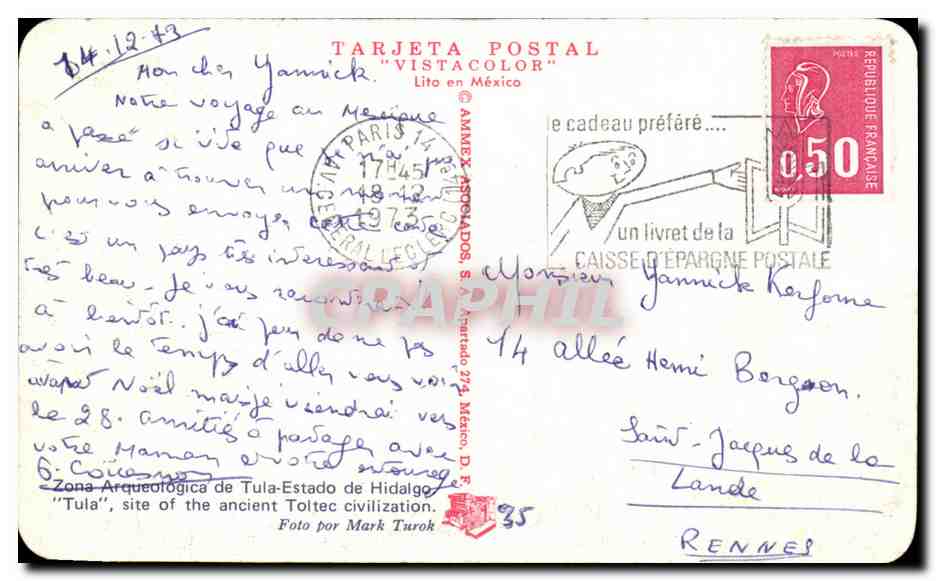 14.12.73
TARJETA POSTAL
"VISTACOLOR"
Lito en México
Mon cher Yannick.
Notre voyage au Mexique
a passé si vite que je n'ai pu
arriver à trouver un moment
pour vous envoyer cette carte
c'est un pays très intéressant et
très beau. Je vous raconterai
à bientôt. j'ai peur de ne pas
avoir le temps d'aller vous voir
avant Noël mais je viendrai vers
le 28. amitiés à partager avec
votre Maman et votre entourage
G.
Zona Arqueológica de Tula-Estado de Hidalgo
"Tula", site of the ancient Toltec civilization.
Foto por Mark Turok
35
© AMMEX ASOCIADOS, S. A. Apartado 274, México, D. F.
PARIS 14
AV. DU GENERAL LECLERC (14e)
17H45
18-12
1973
le cadeau préféré....
un livret de la
CAISSE D'EPARGNE POSTALE
POSTES
REPUBLIQUE FRANÇAISE
0,50
Monsieur Yannick Kerforne
14 allée Henri Bergson.
Saint-Jacques de la
Lande
RENNES
CPAPHIL